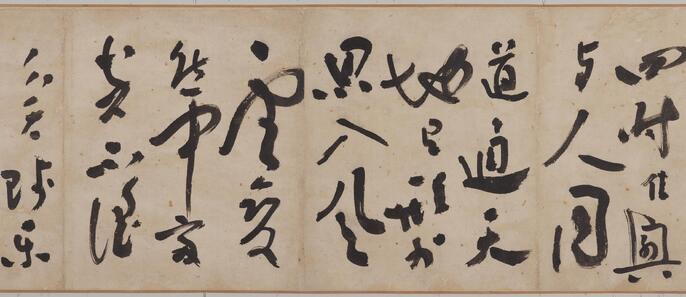 四时佳興
与人同
道通天
地有形外
思入風
雲変
態中富
貴不淫
貧賤樂